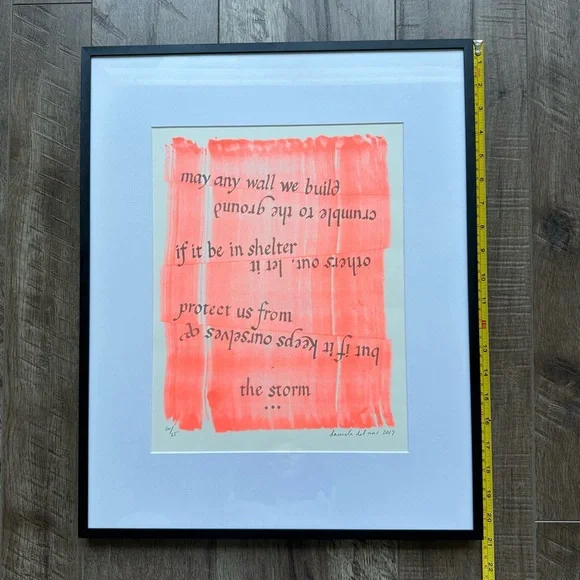 may any wall we build
crumble to the ground
if it be in shelter
others out, let it
protect us from
but if it keeps ourselves &
the storm
...
daniela del mar